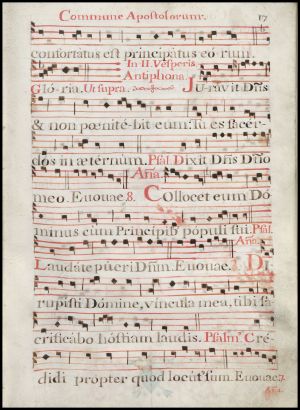 Commune Apostolorum. 17
confortatus est principatus eorium.
In II. Vesperis
Antiphona.
Gloria. Ut supra. Juravit Dñs
& non pœnité-bit eum: Tu es sacer-
dos in æternum. Psal. Dixit Dñs Dño
Aña.
meo. Evovae. 8. Collocet eum Dó
minus cum Principib populi sui. Psal.
Aña.
Laudate púeri Dñm. Evovae. Di
rupisti Dómine, vincula mea, tibi sa
crificábo hostiam laudis. Psalm. Cré-
didi propter quod locut'sum. Evovae.
Aña.